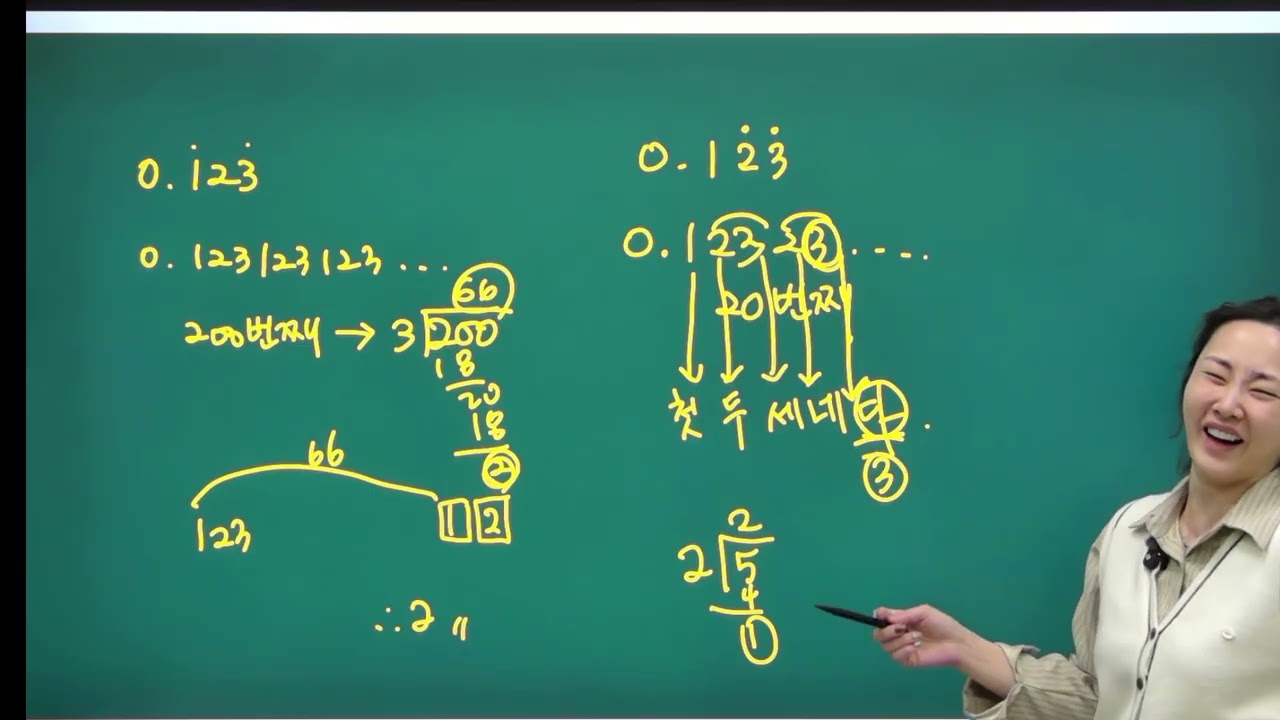 0.1̇23̇
0.123123123...
200번째 → 3 200
66
18
20
18
2
66
123 1 2
∴ 2 〃
0.12̇3̇
0.12323.....
20번째
첫 두 세 네
3
2
2 5
4
1